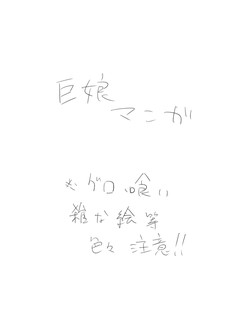 巨娘
マンガ
※ゲロ 喰い
雑な絵等
色々 注意!!